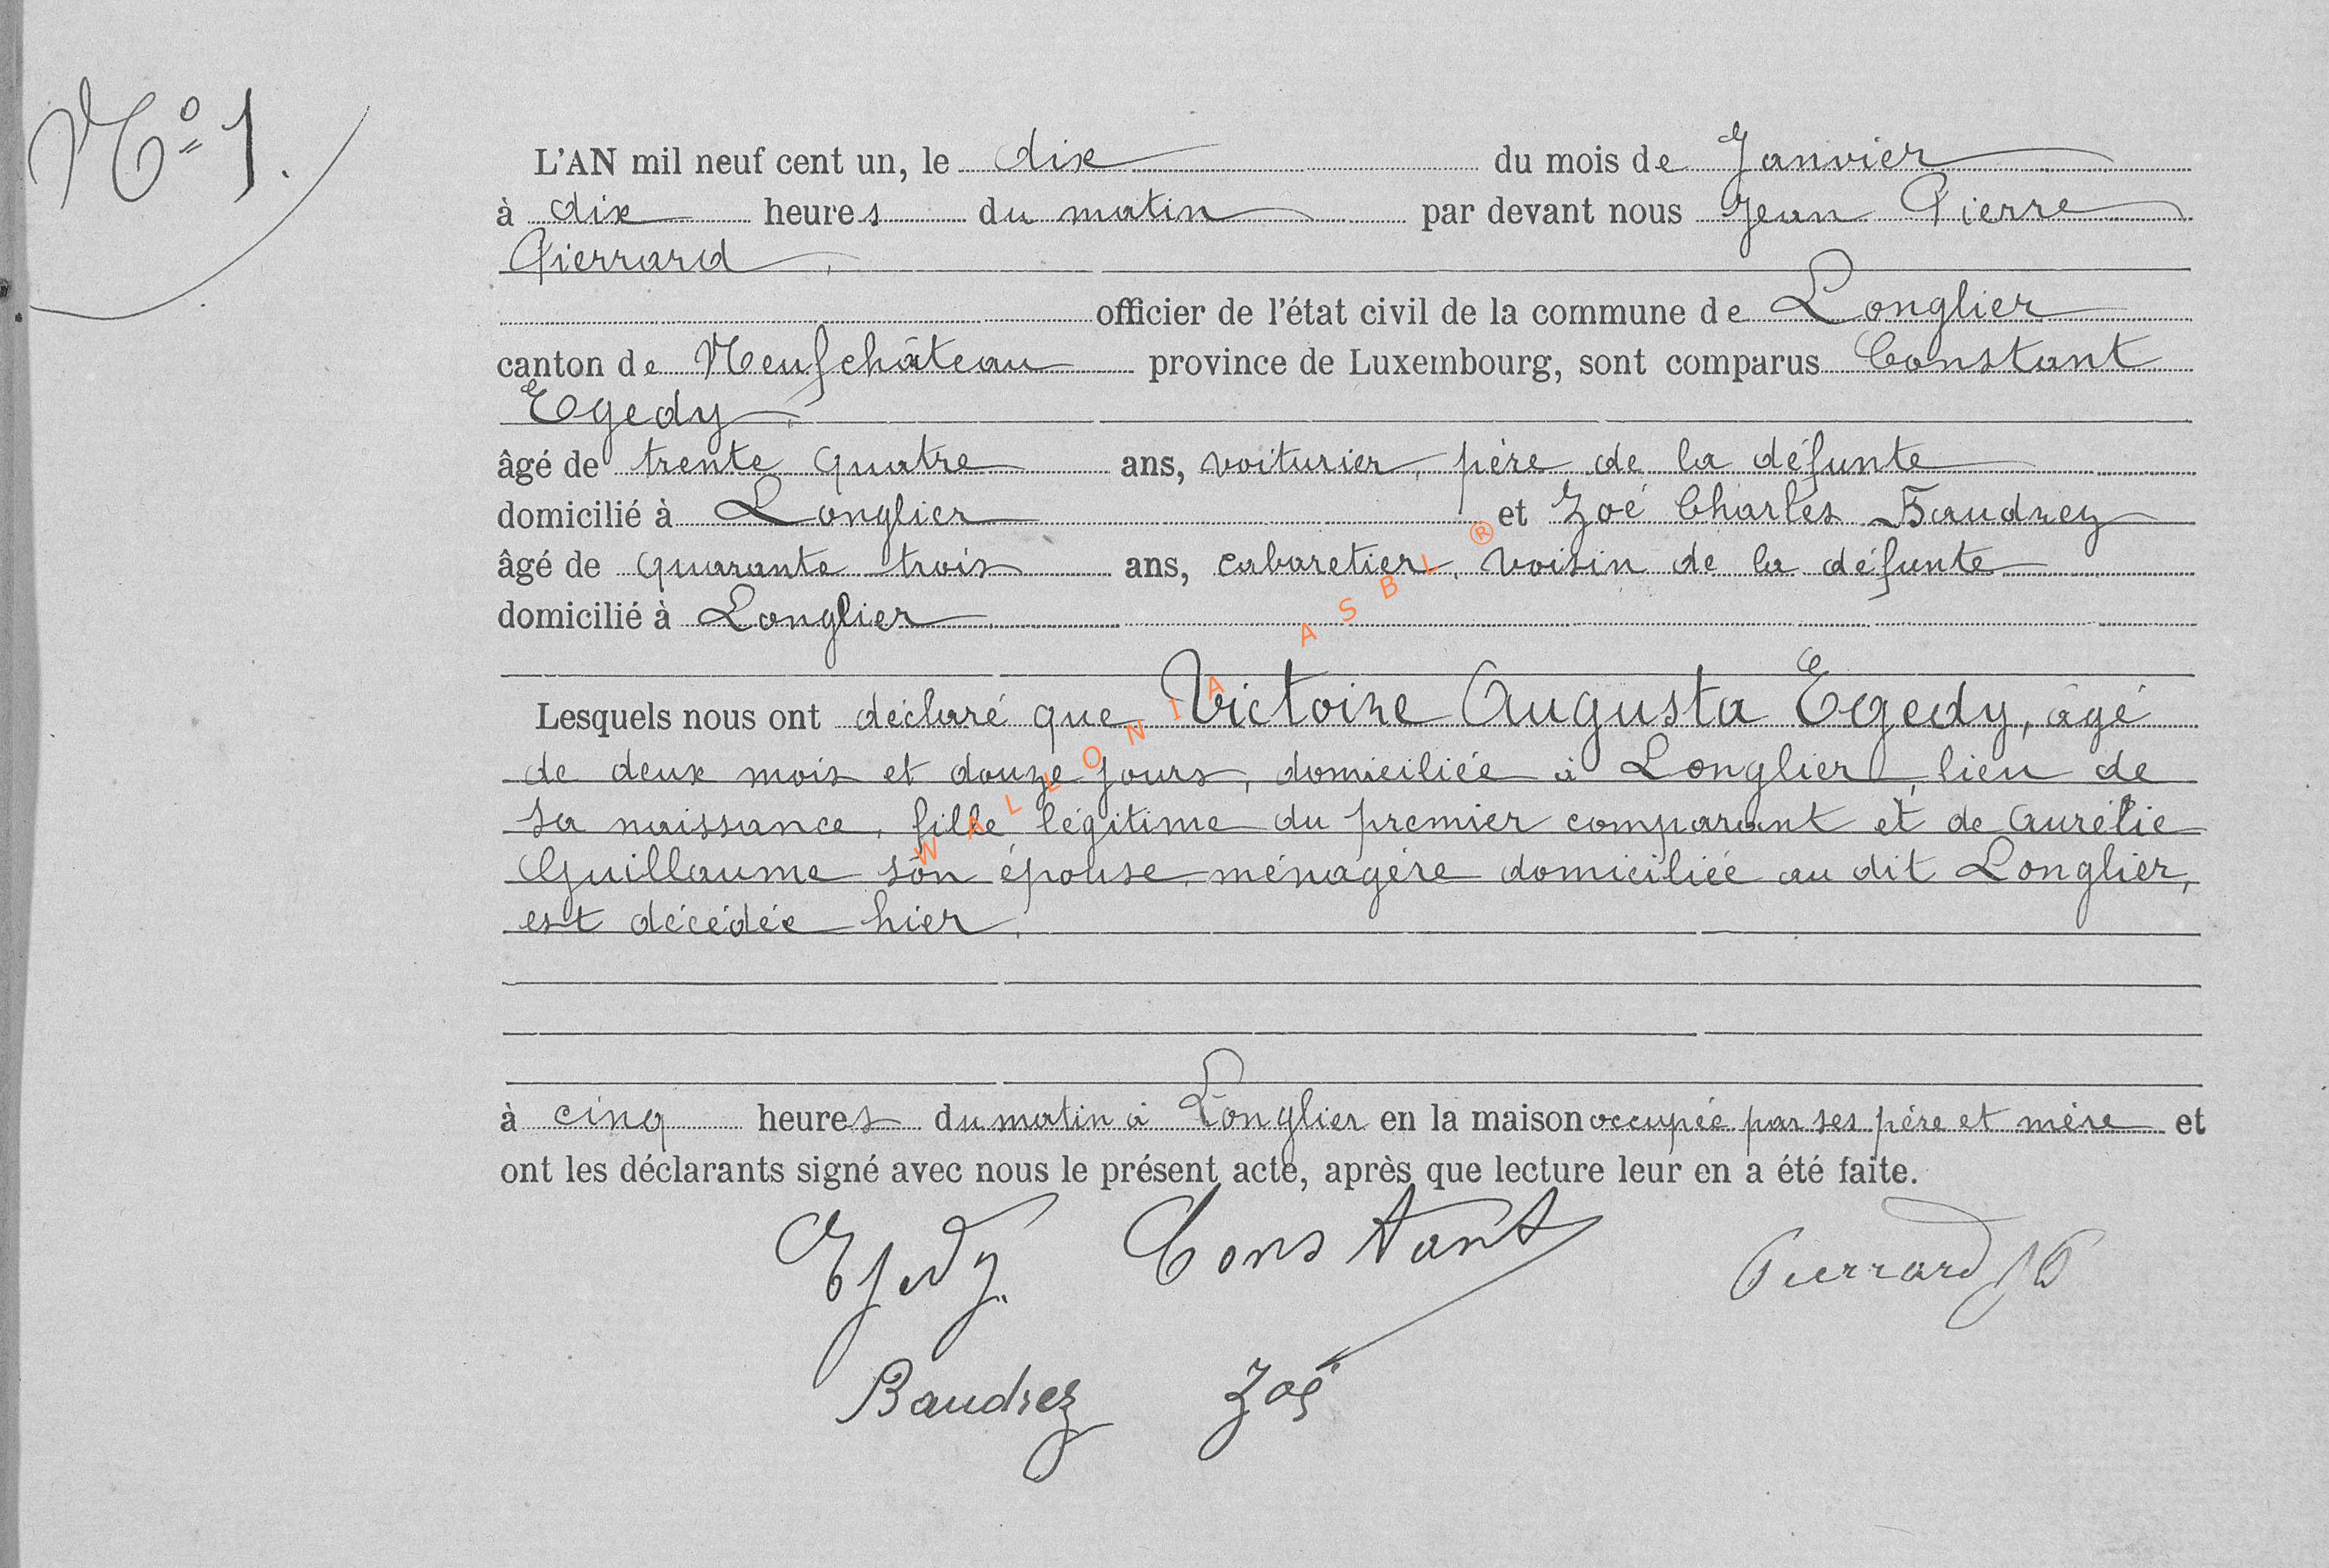 Nº 1.
L'AN mil neuf cent un, le dix du mois de Janvier
à dix heures du matin par devant nous Jean Pierre
Pierrard,
officier de l'état civil de la commune de Longlier
canton de Neufchâteau province de Luxembourg, sont comparus Constant
Egedy,
âgé de trente quatre ans, voiturier, père de la défunte
domicilié à Longlier et Zoé Charles Baudrez
âgé de quarante trois ans, cabaretier, voisin de la défunte
domicilié à Longlier
Lesquels nous ont déclaré que Victoire Augusta Egedy, âgé
de deux mois et douze jours, domiciliée à Longlier, lieu de
sa naissance, fille légitime du premier comparant et de Aurélie
Guillaume son épouse, ménagère domiciliée au dit Longlier,
est décédée hier,
à cinq heures du matin à Longlier en la maison occupée par ses père et mère et
ont les déclarants signé avec nous le présent acte, après que lecture leur en a été faite.
Egedy Constant Pierrard JP
Baudrez Zoé
WALLONIA ASBL ®